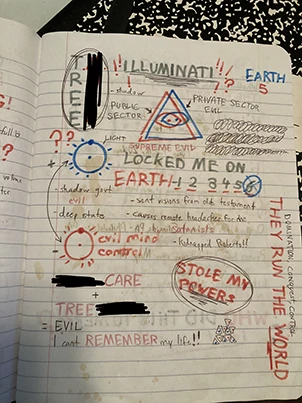 TREE
!! ILLUMINATI !!
? ??
EARTH
5
- shadow
PUBLIC
SECTOR
PRIVATE SECTOR
EVIL
??
LIGHT
SUPREME EVIL
LOCKED ME ON
EARTH 1 2 3 4 5 6
- shadow govt
evil
- deep state
- sent visions from old testament
- causes remote headaches for the
satanists
- kidnapped Roberts!!
evil mind
control
CARE
+
TREE
= EVIL
I cant REMEMBER my life!!
STOLE MY
POWERS
DOMINATION CONQUEST CONTROL
THEY RUN THE WORLD